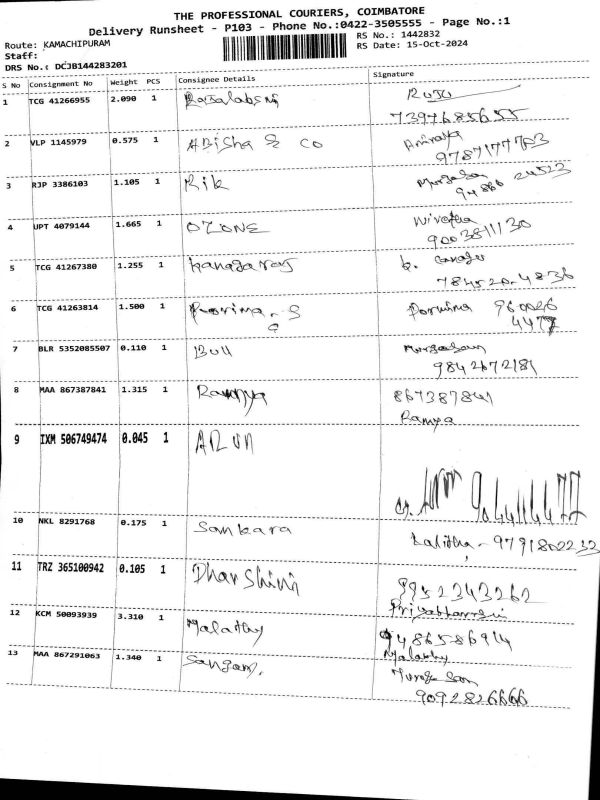 THE PROFESSIONAL COURIERS, COIMBATORE
Delivery Runsheet - P103 - Phone No.:0422-3505555 - Page No.:1
Route: KAMACHIPURAM RS No.: 1442832
Staff: RS Date: 15-Oct-2024
DRS No.: DCJB144283201
S No Consignment No Weight PCS Consignee Details Signature
1 TCG 41266955 2.090 1
7397685655
2 VLP 1145979 0.575 1 ABisha & CO
3 RJP 3386103 1.105 1 Rik
4 UPT 4079144 1.665 1 OZONE
9003811130
5 TCG 41267380 1.255 1 Kanagaraj
6 TCG 41263814 1.500 1
7 BLR 5352085507 0.110 1 Bull
9842672181
8 MAA 867387841 1.315 1 Ramya 867387841
Ramya
9 IXM 506749474 0.045 1 ARUN
10 NKL 8291768 0.175 1 Sankara
Lalitha - 9791802233
11 TRZ 365100942 0.105 1 Dharshini 9952343262
12 KCM 50093939 3.310 1 Malathy 9486586914
Malathy
13 MAA 867291063 1.340 1
9092826666